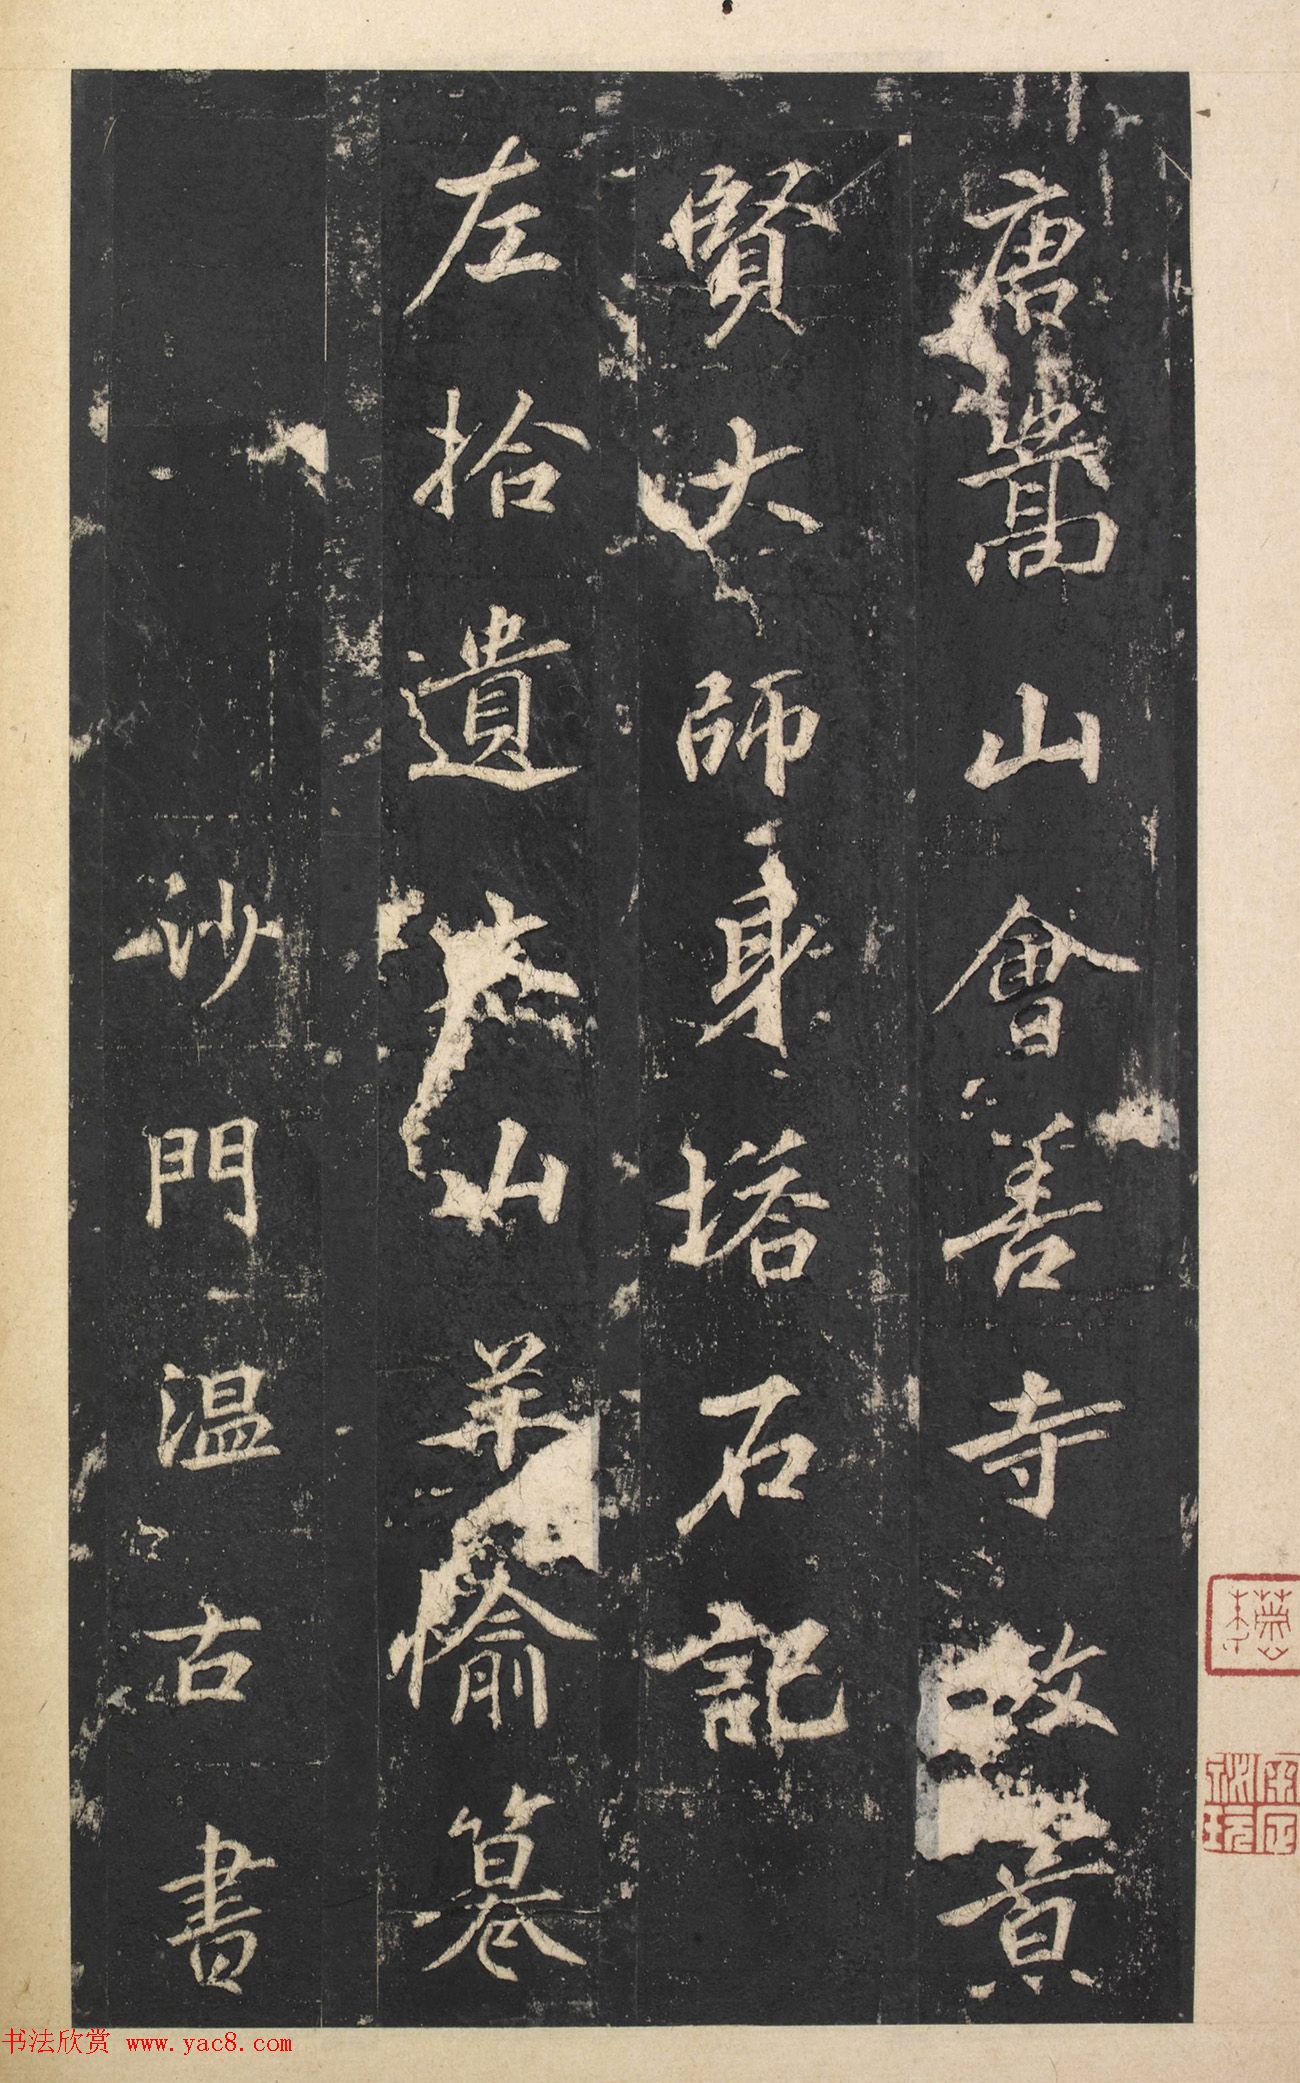 唐嵩山會善寺故景
賢大師身塔石記
左拾遺 山羊愉篹
沙門溫古書
书法欣赏 www.yac8.com